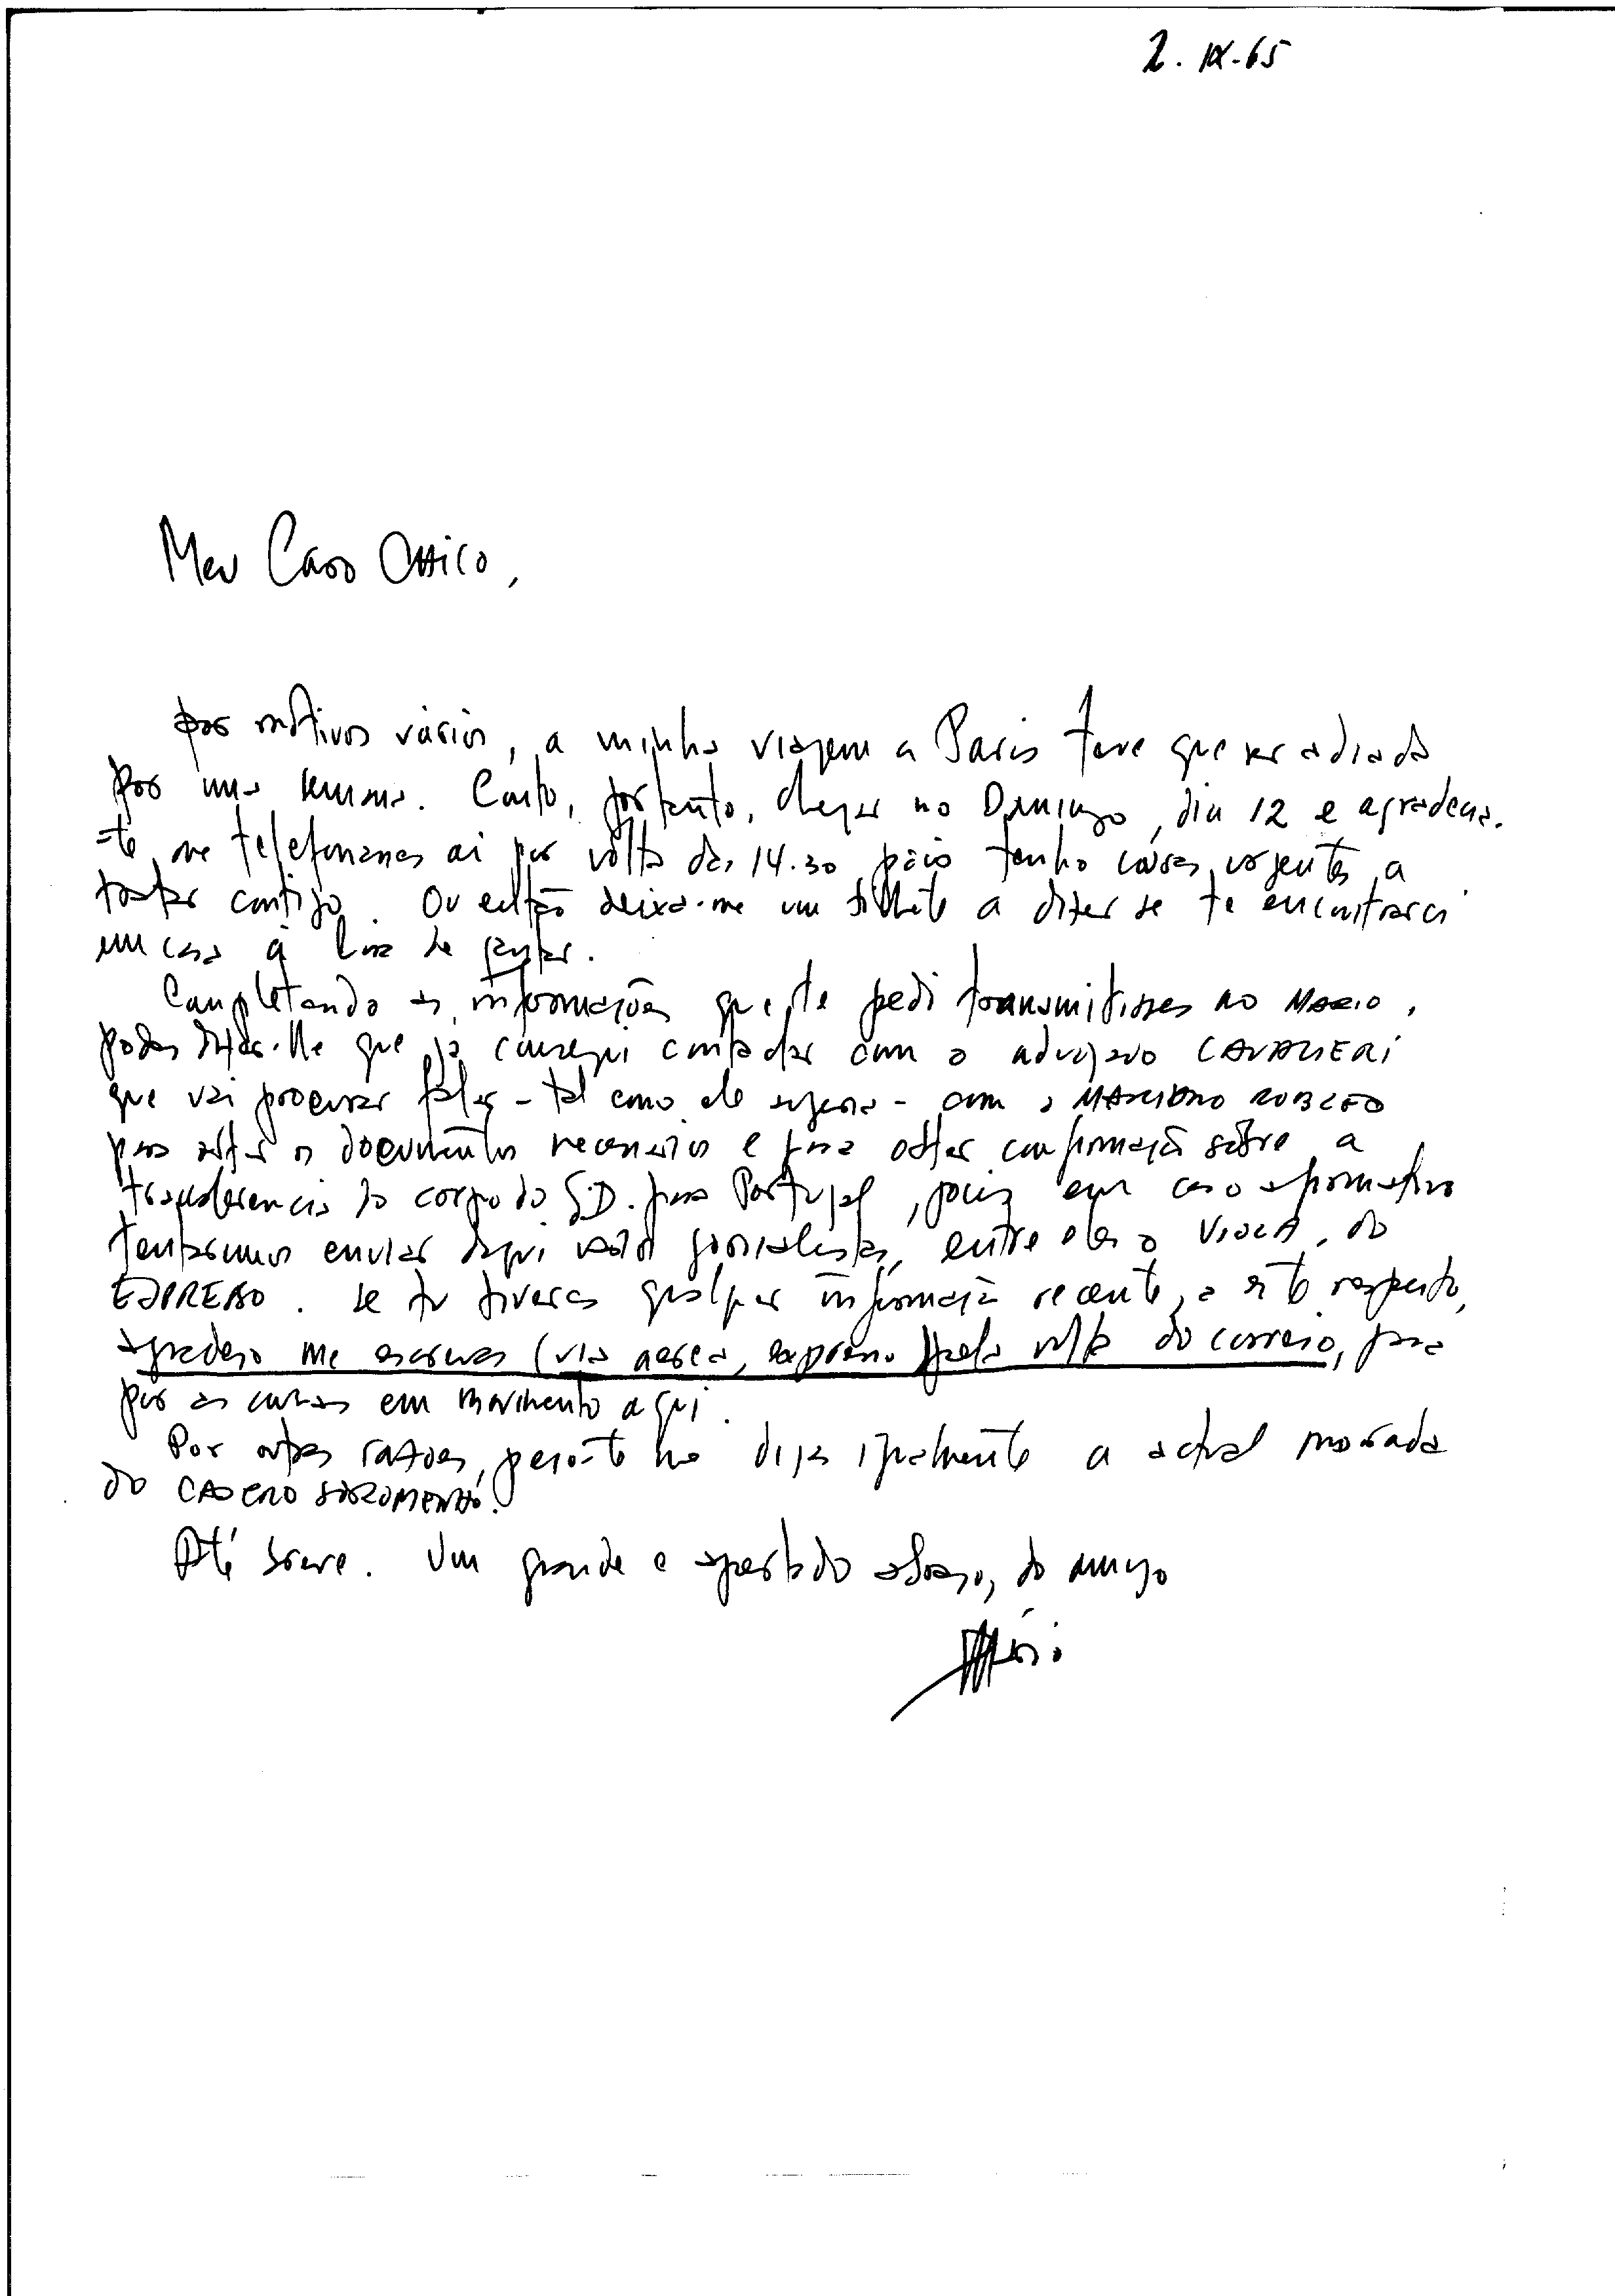 2. IX-65
Meu Caro Chico,
por motivos vários, a minha viagem a Paris teve que ser adiada
por uma semana. Conto, portanto, chegar no Domingo, dia 12 e agradecia-
-te me telefonasses aí por volta das 14.30 pois tenho coisas urgentes a
tratar contigo. Ou então deixa-me um bilhete a dizer se te encontrarei
em casa à hora de jantar.
Completando as informações que te pedi transmitisses ao MARIO,
podes dizer-lhe que já consegui contactar com o advogado CAVALIERI
que vai procurar falar - tal como ele sugeria - com o MARIANO ROBLEDO
para obter os documentos necessários e para obter confirmação sôbre a
transferencia do corpo do G.D. para Portugal, pois em caso afirmativo
tentaremos enviar daqui vários jornalistas, entre eles o VIOLA, do
ESPRESSO. Se tu tiveres qualquer informação recente, a este respeito,
agradeço me escrevas (via aerea, expresso) pela volta do correio, para
por as coisas em movimento aqui.
Por outras razões, peço-te me digas igualmente a actual morada
do CASTRO SOROMENHO.
Até breve. Um grande e apertado abraço, do amigo